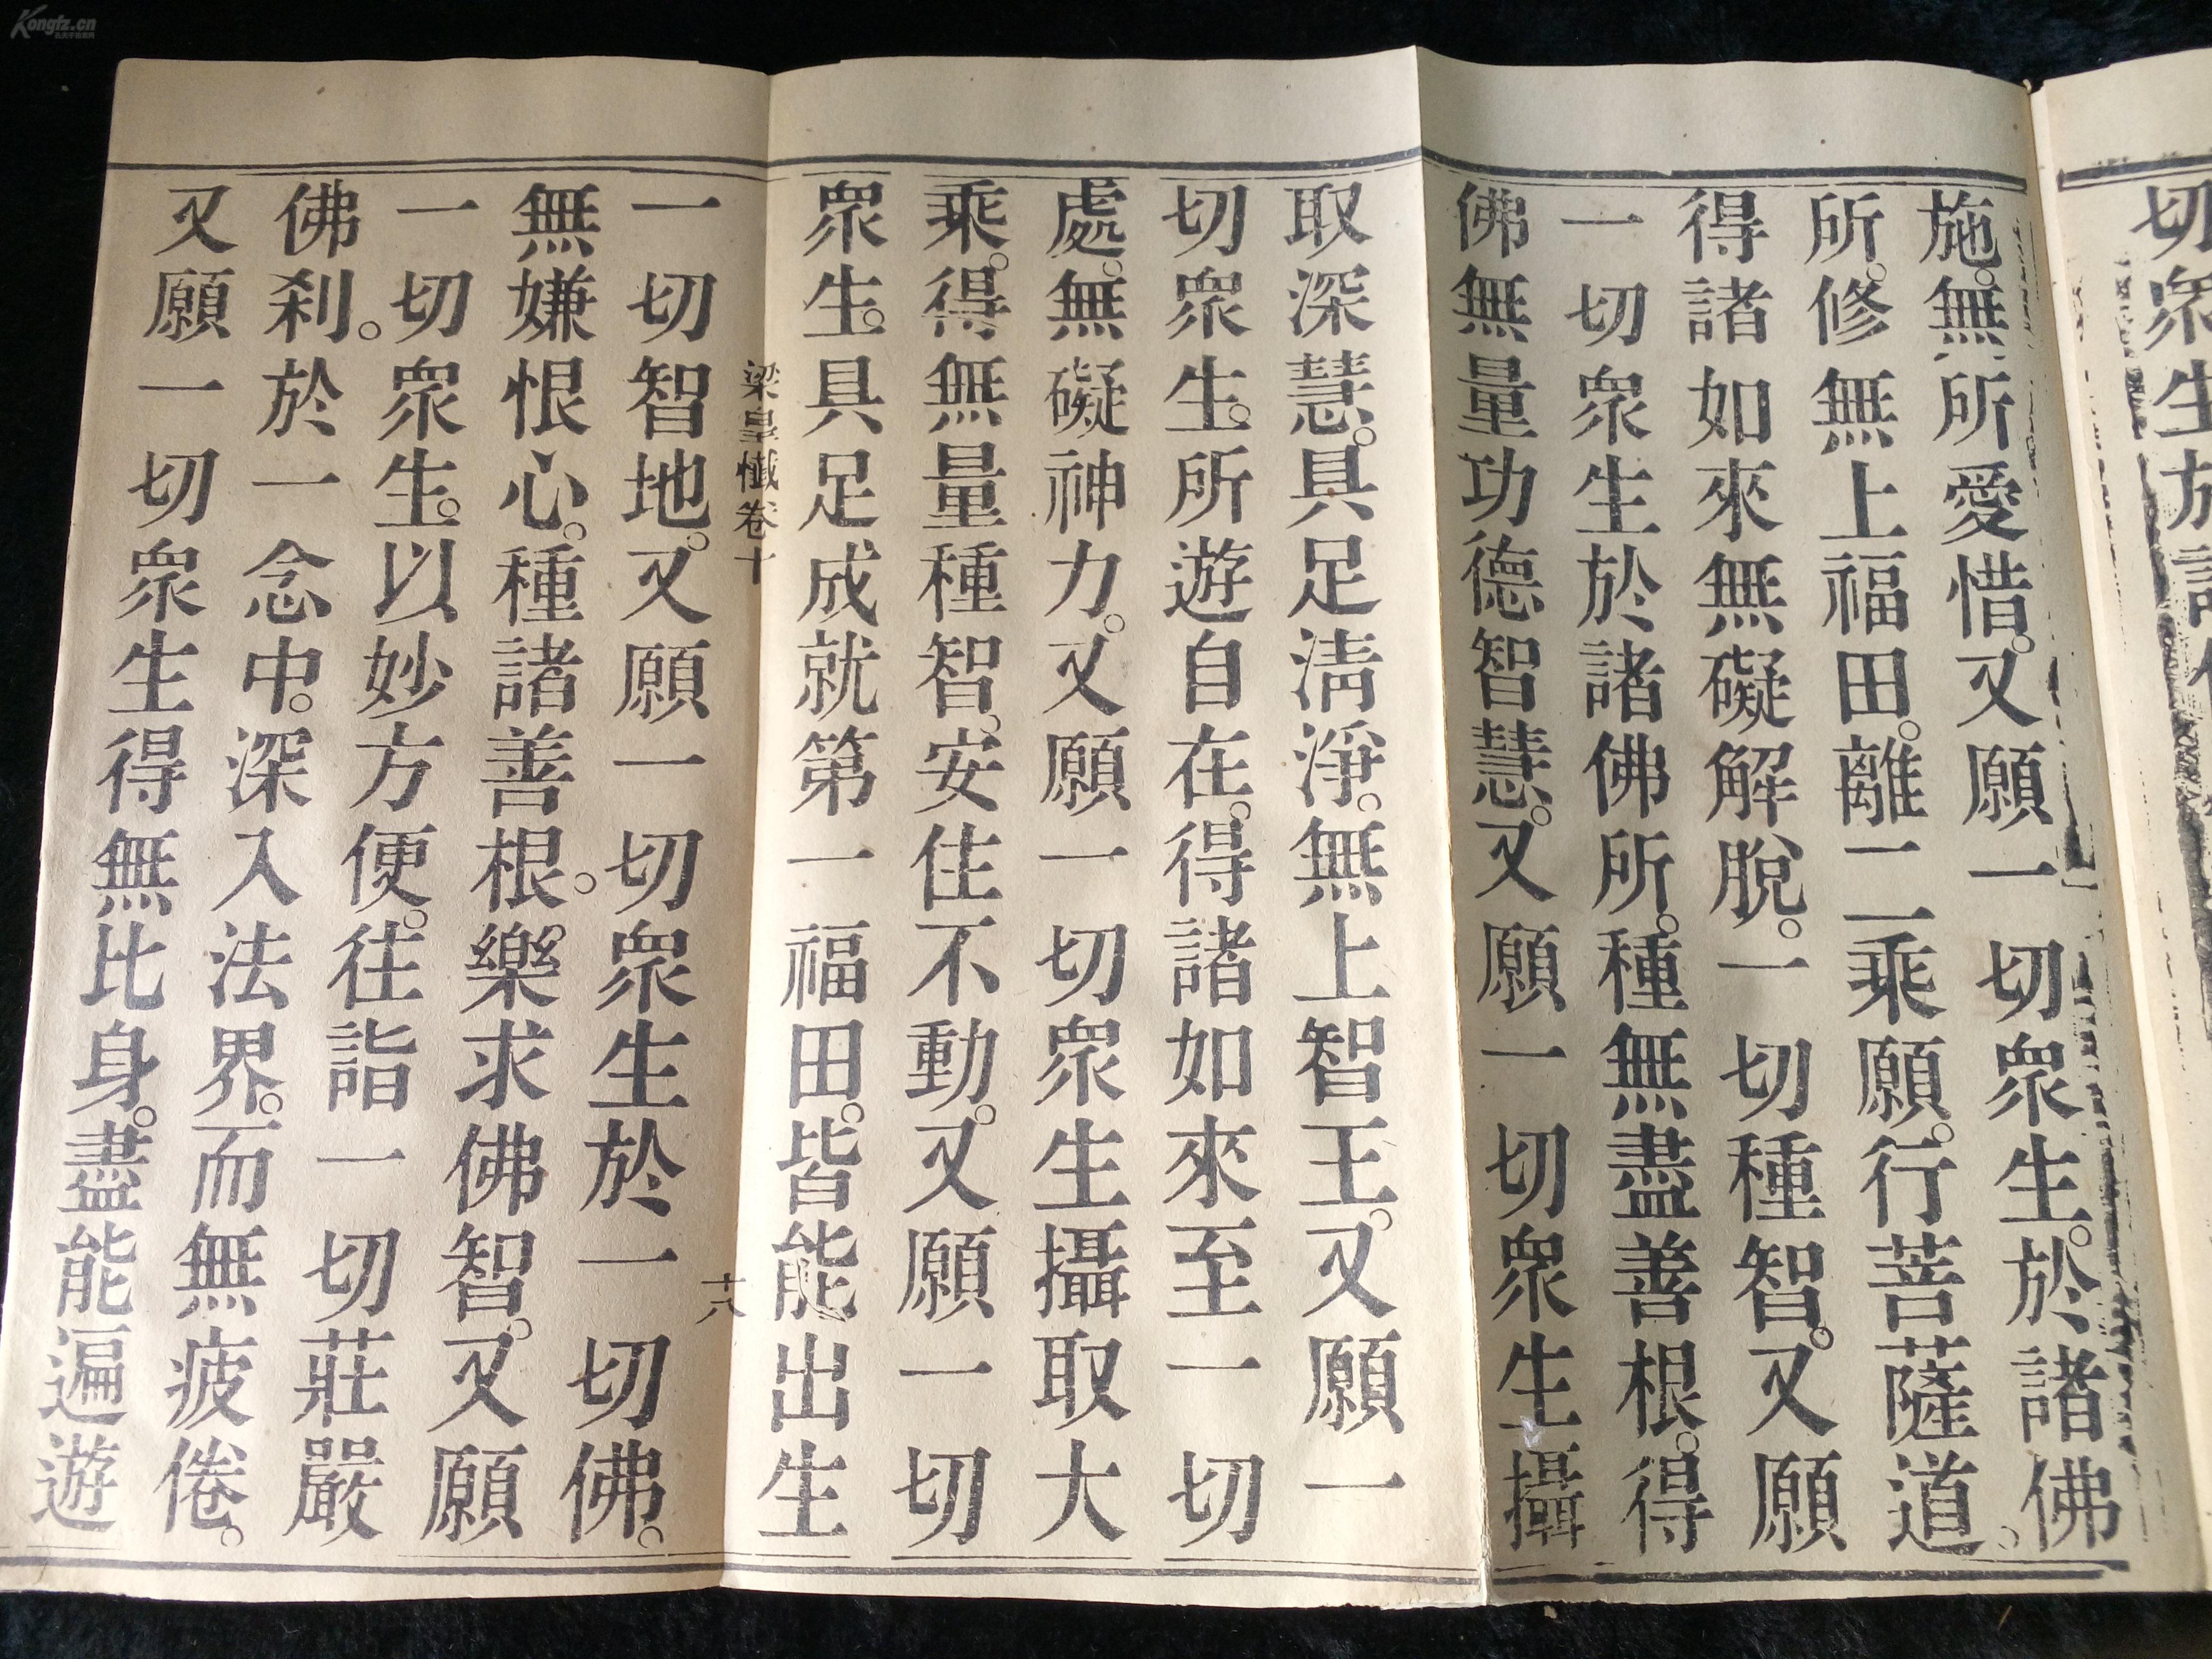 切衆生於諸
施。無所愛惜。又願一切衆生。於諸佛
所。修無上福田。離二乘願。行菩薩道。
得諸如來無礙解脫。一切種智。又願
一切衆生於諸佛所。種無盡善根。得
佛無量功德智慧。又願一切衆生攝
取深慧。具足清淨。無上智王。又願一
切衆生。所遊自在。得諸如來至一切
處。無礙神力。又願一切衆生攝取大
乘。得無量種智。安住不動。又願一切
衆生。具足成就第一福田。皆能出生
梁皇懺卷十
十八
一切智地。又願一切衆生於一切佛。
無嫌恨心。種諸善根。樂求佛智。又願
一切衆生。以妙方便。往詣一切莊嚴
佛刹。於一念中。深入法界。而無疲倦。
又願一切衆生得無比身。盡能遍遊
Kongfz.cn